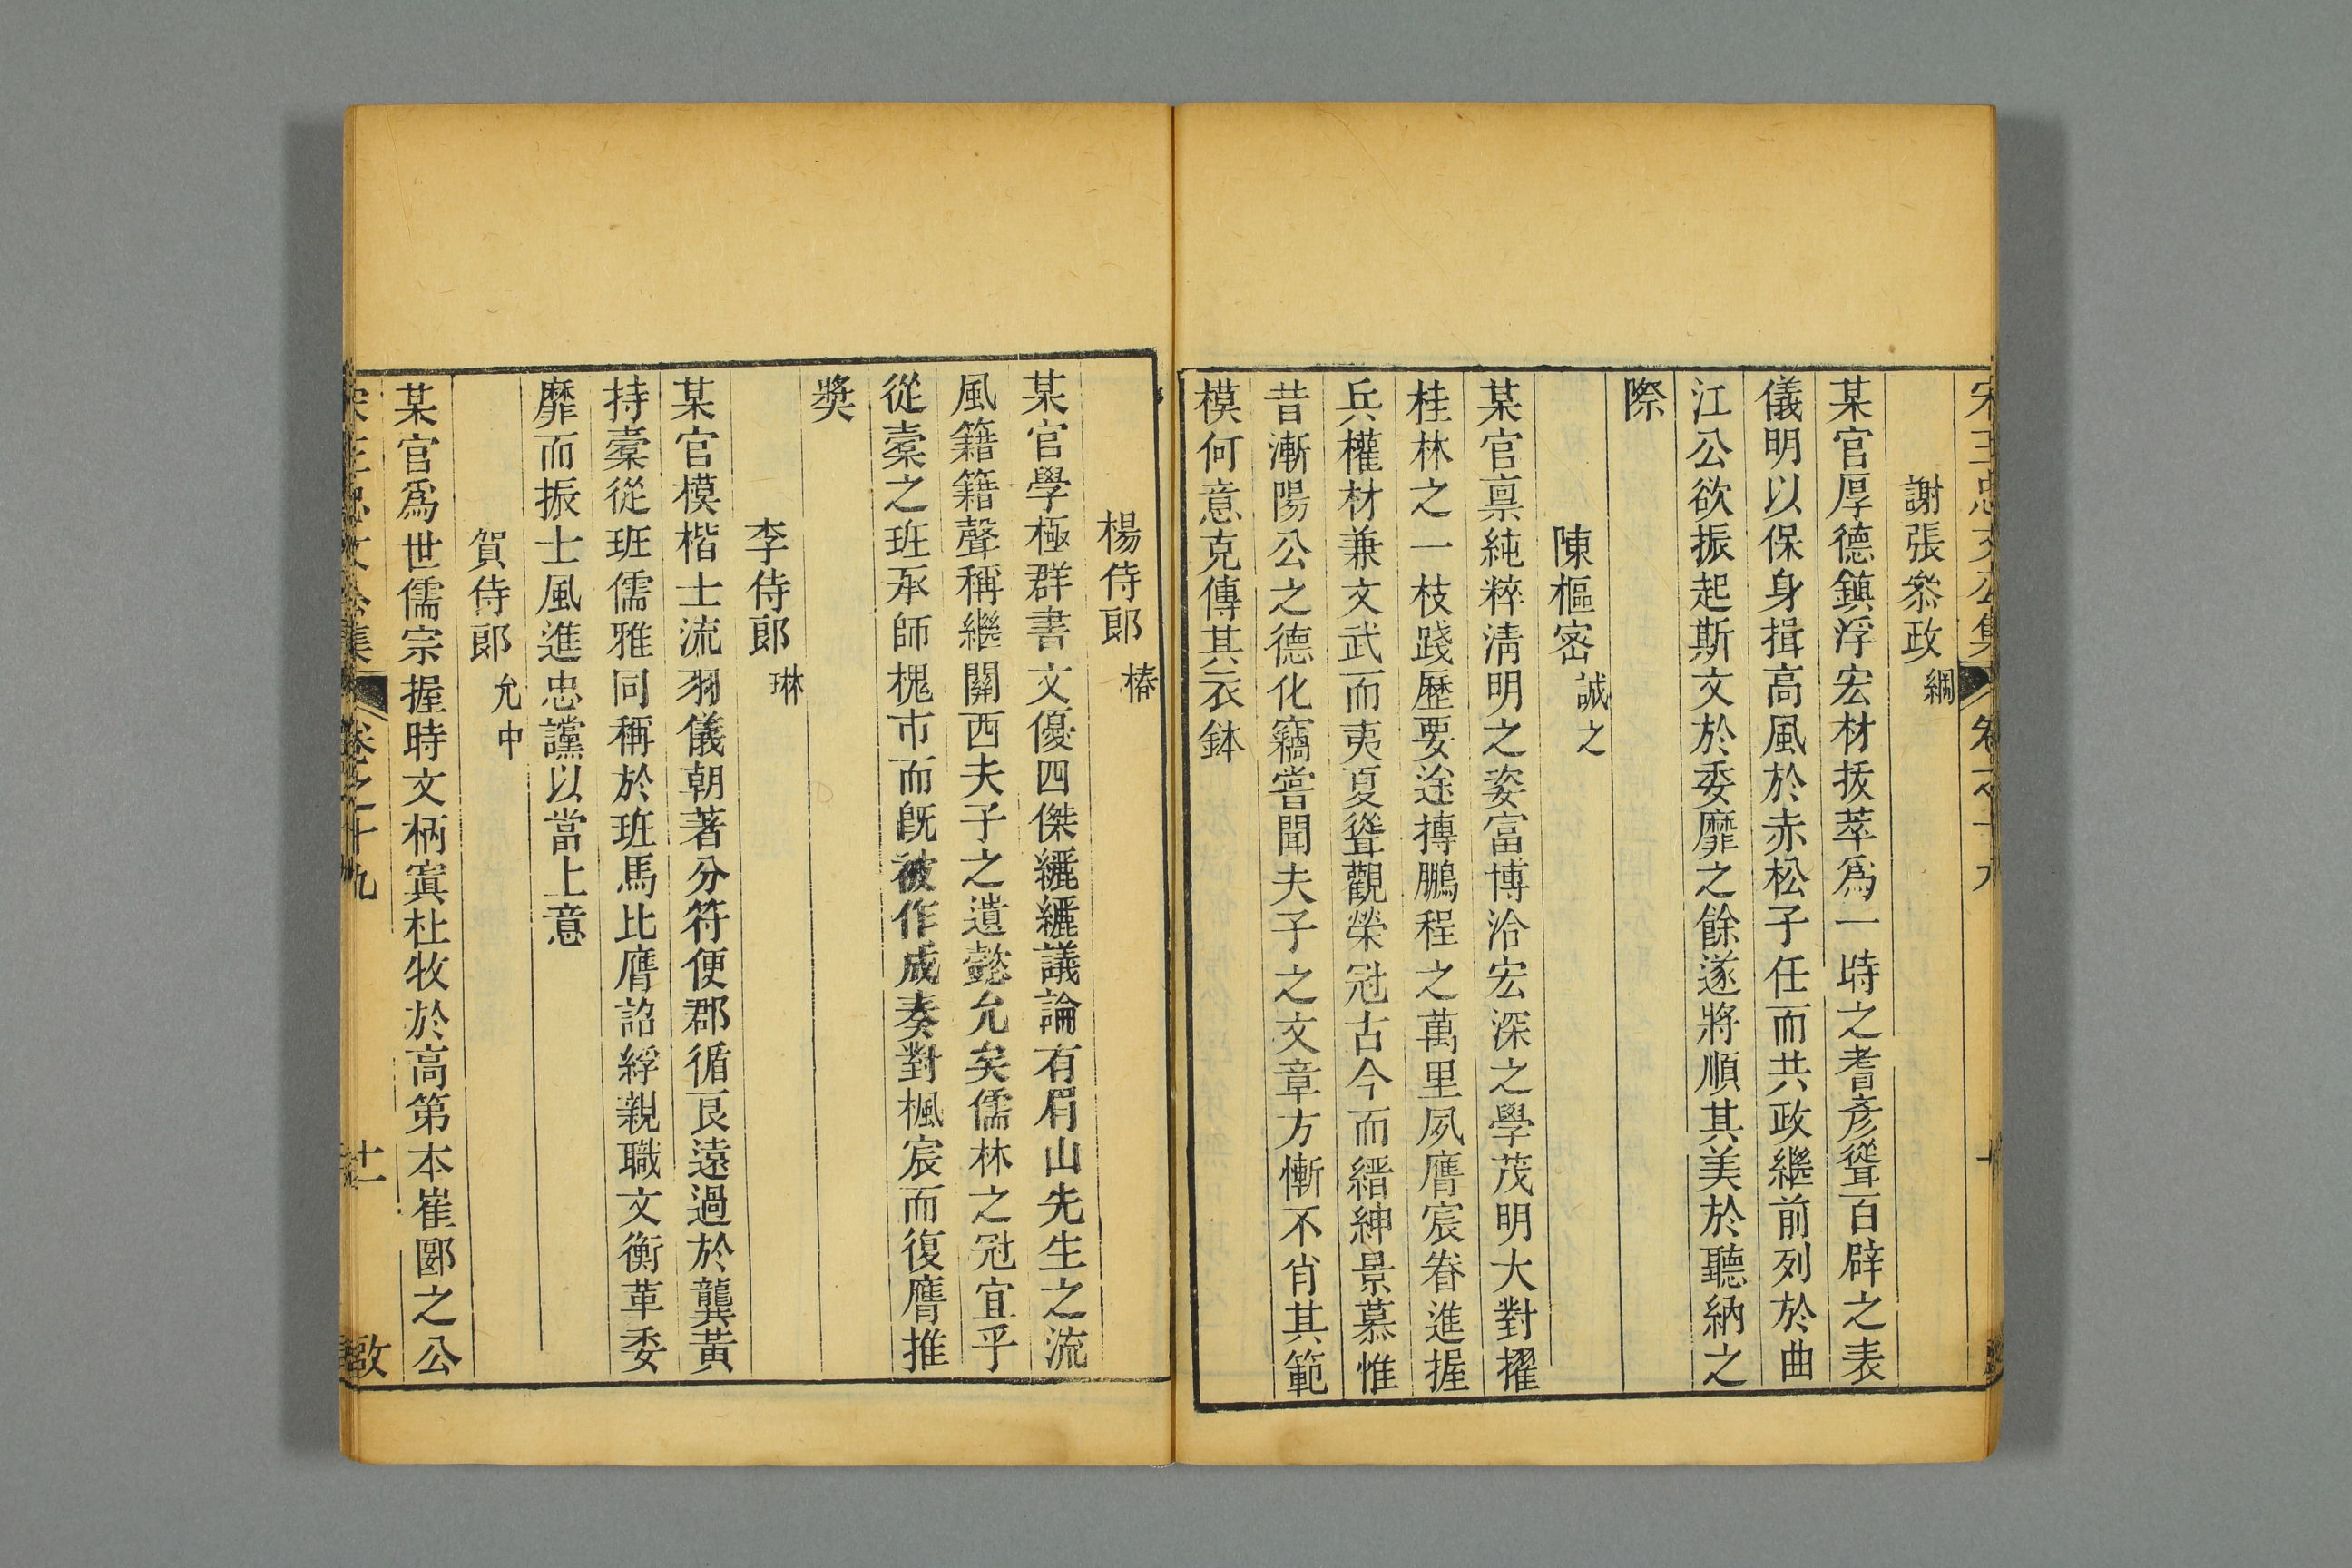 宋王忠文公集 卷之十九 十
謝張叅政 綱
某官厚德鎮浮宏材拔萃爲一時之耆彥聳百辟之表
儀明以保身揖高風於赤松子任而共政繼前列於曲
江公欲振起斯文於委靡之餘遂將順其美於聽納之
際
陳樞密 誠之
某官禀純粹淸明之姿富博洽宏深之學茂明大對擢
桂林之一枝踐歷要途摶鵬程之萬里夙膺宸眷進握
兵權材兼文武而夷夏聳觀榮冠古今而縉紳景慕惟
昔漸陽公之德化竊嘗聞夫子之文章方慚不肖其範
模何意克傳其衣鉢
楊侍郞 椿
某官學極群書文優四傑纚纚議論有眉山先生之流
風籍籍聲稱繼關西夫子之遺懿允矣儒林之冠宜乎
從橐之班承師槐市而旣被作成奏對楓宸而復膺推
奬
李侍郞 琳
某官模楷士流羽儀朝著分符便郡循良遠過於龔黃
持橐從班儒雅同稱於班馬比膺詔綍親職文衡革委
靡而振士風進忠讜以當上意
賀侍郞 允中
某官爲世儒宗握時文柄寘杜牧於高第本崔郾之公
宋王忠文公集 卷之十九 十一